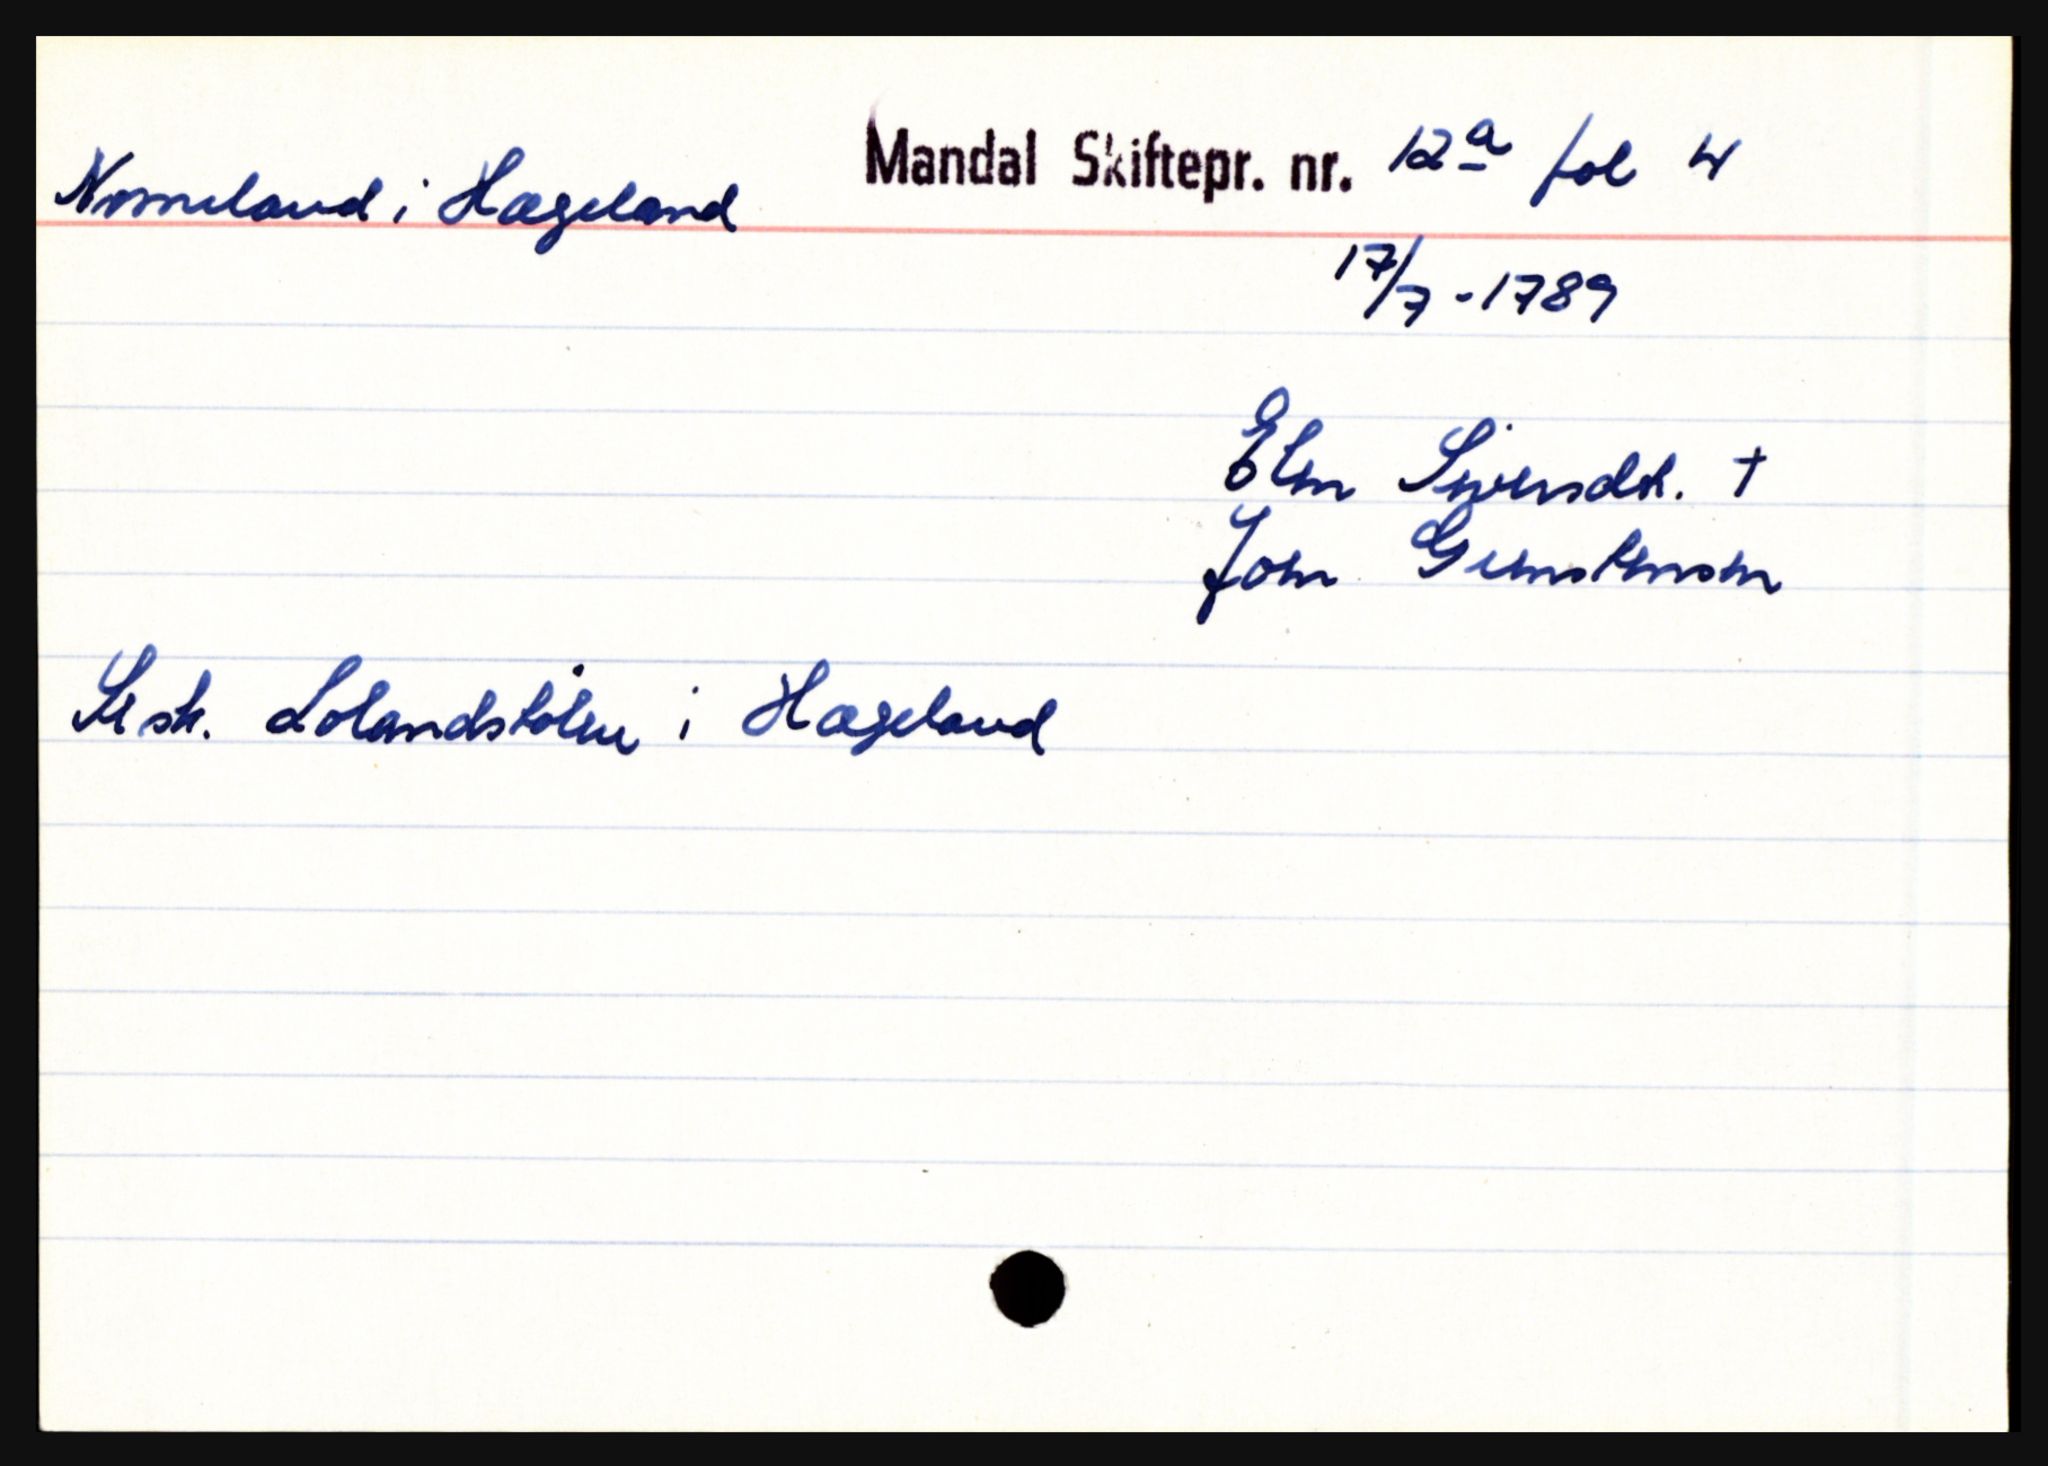 Nomeland i Hægeland Mandal Skiftepr. nr. 12a fol 4
17/7-1789
Elen Siversdtr. †
Joen Gunstensen
Se sk. Lolandstølen i Hægeland